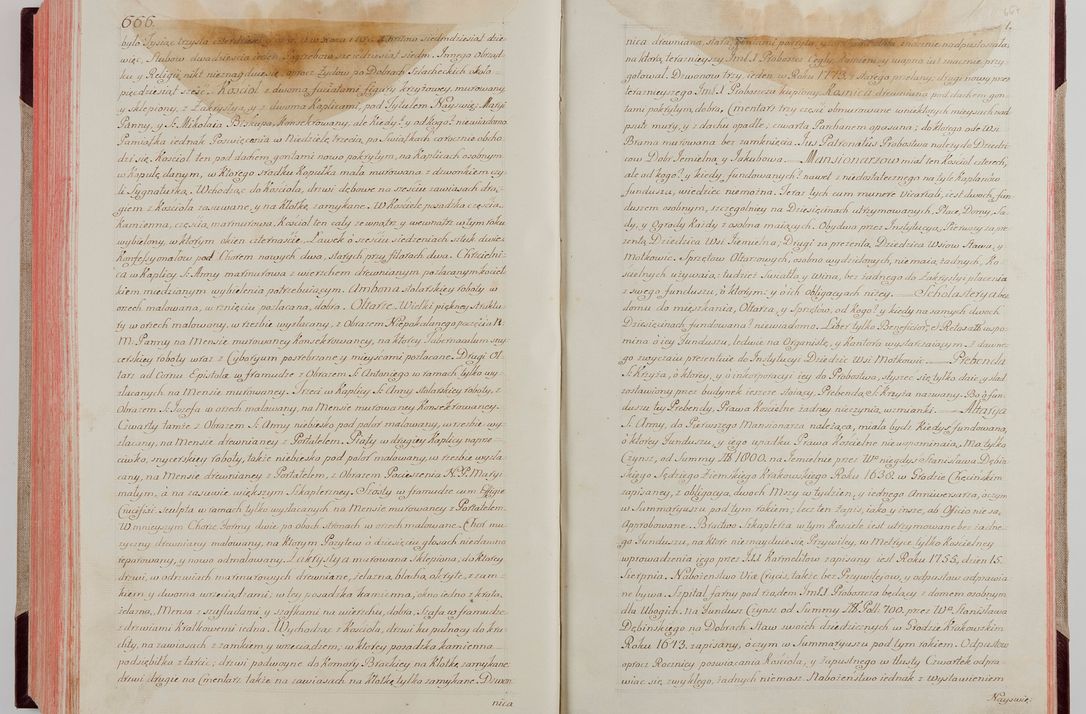 666.
było Tysiąc trzysta czterdzieści
więc, Ślubów dwadzieścia ieden, Pogrzebow siedmdziesiąt siedm. Innego Obrząd-
ku, y Religii nikt nieznayduie się, oprocz Żydow po Dobrach Szlacheckich około
pięćdziesiąt sześć. Kościoł z dwoma faciatami figury krzyżowey, murowany
y sklepiony, z Zakrystyą, y z dwoma Kaplicami, pod Tytułem Nayświę: Maryi
Panny, y S. Mikołaia Biskupa, Konsekrowany, ale kiedy? y od kogo? niewiadomo
Pamiątka iednak Poświęcenia w Niedzielę trzecią po Świątkach corocznie obcho-
dzi się. Kościoł ten pod dachem gontami nowo pokrytym, na Kaplicach osobnym
w Kopułę danym, w którego środku Kopułka mała murowana z dzwonkiem czy-
li Sygnaturką. Wchodząc do Kościoła, drzwi dębowe na sześciu zawiasach drą-
giem z Kościoła zasuwane, y na Kłotkę zamykane. W Kościele posadzka częścią
kamienna, częścią marmurowa, Kościoł ten cały zewnątrz y wewnątrz w tym roku
wybielony, w którym okien czternaście. Ławek o sześciu siedzeniach sztuk dwie,
Konfessyonałow pod Chorem nowych dwa, starych przy filarach dwa. Chrzcielni-
ca w Kaplicy S. Anny marmurowa z wierzchem drewnianym pozłacanym kocieł-
kiem miedzianym wybielenia potrzebuiącym. Ambona stolarskiey roboty w
orzech malowana, w rznięciu pozłacana, dobra. Ołtarze. Wielki piękney struktu-
ry w orzech malowany, w rzeźbie wyzłacany, z Obrazem Niepokalanego poczęcia N.
M. Panny na Mensie murowaney Konsekrowaney, na którey Tabernaculum sny-
cerskiey roboty wraz z Cyboryum posrebrzane y mieyscami pozłacane. Drugi Oł-
tarz ad Cornu Epistolæ w framudze z Obrazem S. Antoniego w ramach tylko wy-
złacanych na Mensie murowaney. Trzeci w Kaplicy S. Anny stolarskiey roboty, z
Obrazem S. Jozefa w orzech malowany, na Mensie murowaney Konsekrowaney.
Czwarty tamże z Obrazem S. Anny niebiesko pod polor malowany, w rzeźbie wy-
złacany, na Mensie drewnianey z Portatelem. Piąty w drugiey Kaplicy naprze-
ciwko, snycerskiey roboty, także niebiesko pod polor malowany, w rzeźbie wyzła-
cany, na Mensie drewnianey z Portatelem, z Obrazem Pocieszenia N. P. Maryi
małym, a na zasuwie większym Szkaplerzney. Szosty w framudze cum Effigie
Crucifixi Sculpta w ramach tylko wyzłacanych na Mensie murowaney z Portatelem
W mnieyszym Chorze Formy dwie po obuch stronach w orzech malowane. Chor mu-
zyczny drewniany malowany, na którym Pozytew o dziesięciu głosach niedawno
reparowany, y nowo odmalowany. Zakrystya murowana sklepiona, do którey
drzwi, w odrzwiach marmurowych drewniane, żelazną blachą okryte, z zam-
kiem, y dwoma wrzeciądzami: w tey posadzka kamienna, okno iedno z kratą
żelazną, Mensa z szufladami y szafkami na wierzchu, dobra, Szafa w framudze
z drzwiami Kratkowemi iedna. Wychodząc z Kościoła, drzwi ku pułnocy do kru-
chty, na zawiasach z zamkiem y wrzeciądzem, w którey posadzka kamienna
podsiębitka z tarcic; drzwi podwoyne do Komory Brackiey na Kłotkę zamykane
drzwi drugie na Cmentarz także na zawiasach na Kłotkę tylko zamykane. Dzwon-
nica
nica drewniana, stara, gontami pokryta, znacznie nadpustoszała,
na którą teraznieyszy Jmć X. Proboszcz Cegły, Kamieni, y wapna iuż znacznie przy-
gotował. Dzwonow trzy, ieden w Roku 1773. z starego przelany, drugi nowy przez
teraznieyszego Jmć X. Proboszcza kupiony. Kośnica drewniana pod dachem gon-
tami pokrytym, dobra. Cmentarz trzy części obmurowane w niektórych mieyscach nad-
psute mury, y z dachu opadłe, czwarta Parkanem opasana; do którego ode Wsi
Brama murowana bez zamknięcia. Jus Patronatus Probostwa należy do Dziedzi-
cow Dobr Jemielna, y Jakubowa. — Mansionarzow miał ten Kościoł czterech,
ale od kogo? y kiedy fundowanych? nawet z niedostatecznego na tyle Kapłanow
funduszu, wiedzieć niemożna. Teraz tych cum munere Vicariali, iest dwoch, fun-
duszem osobnym, szczegolniey na Dziesięcinach utrzymowanych, Place, Domy, Sa-
dy, y Ogrody Każdy z osobna maiących. Obydwa przez Instytucyą, Pierwszy za pre-
zentą Dziedzica Wsi Jemielna; Drugi za prezentą Dziedzica Wsiow Stawu, y
Motkowic. Sprzętow Ołtarzowych, osobno wydzielanych, nie maią żadnych, Ko-
ścielnych używaią: tudzież Światła, y Wina, bez żadnego do Zakrystyi płacenia
z swego funduszu, o którym: y o ich obligacyach niżey. — Scholasterya bez
domu do mieszkania, Ołtarza, y Sprzętow, od kogo? y kiedy na samych dwoch
Dziesięcinach fundowana? niewiadomo. Liber tylko Beneficior: et Retaxat: wspo-
mina o iey Funduszu, ledwie na Organistę, y Kantora wystarczaiącym. Z dawne-
go zwyczaiu prezentuie do Instytucyi Dziedzic Wsi Motkowic. — Prebenda
S. Krzyża, o którey, y o inkorporacyi iey do Probostwa, słyszeć się tylko daie, y ślad
zostawiony przez budynek ieszcze stoiący, Prebendą S. Krzyża nazwany. Bo o fun-
duszu tey Prebendy, Prawa Kościelne żadney nieczynią wzmianki. — Altarya
S. Anny, do Pierwszego Mansionarza należąca, miała bydź kiedyś fundowana,
o którey Funduszu, y iego upadku Prawo Kościelne niewspominaią. Ma tylko
Czynsz, od Summy 1000. na Jemielnie przez niegdyś Stanisława Dębiń-
skiego Sędziego Ziemskiego Krakowskiego Roku 1630. w Grodzie Chęcińskim
zapisaney, z obligacyą dwoch Mszy w tydzień, y iednego Anniwersarza, o czym
w Summaryuszu pod tym rokiem; lecz ten zapis, iako y insze, ab Officio nie są
Approbowane. Bractwo Szkaplerza w tym Kościele iest utrzymowane bez żadne-
go Funduszu, na które nie znayduie się Przywiley, w Metryce tylko Kościelney
wprowadzenia iego przez Karmelitow zapisany iest Roku 1755. dzień 15.
Sierpnia. Nabożeństwo Viæ Crucis, także bez Przywileiow, y odpustow odprawia-
ne bywa. Szpital farny pod rządem Jmć X. Proboszcza będący z domem osobnym
dla Ubogich. Na Fundusz Czynsz od Summy 700. przez Stanisława
Dębinskiego na Dobrach Staw swoich dziedzicznych w Grodzie Krakowskim
Roku 1673. zapisany, o czym w Summaryuszu pod tym rokiem. Odpustow
oprocz Rocznicy poświącania Kościoła, y zapustnego w tłusty Czwartek odpra-
wiać się zwykłego, żadnych niemasz. Nabożeństwo iednak z Wystawieniem
Nayświę.